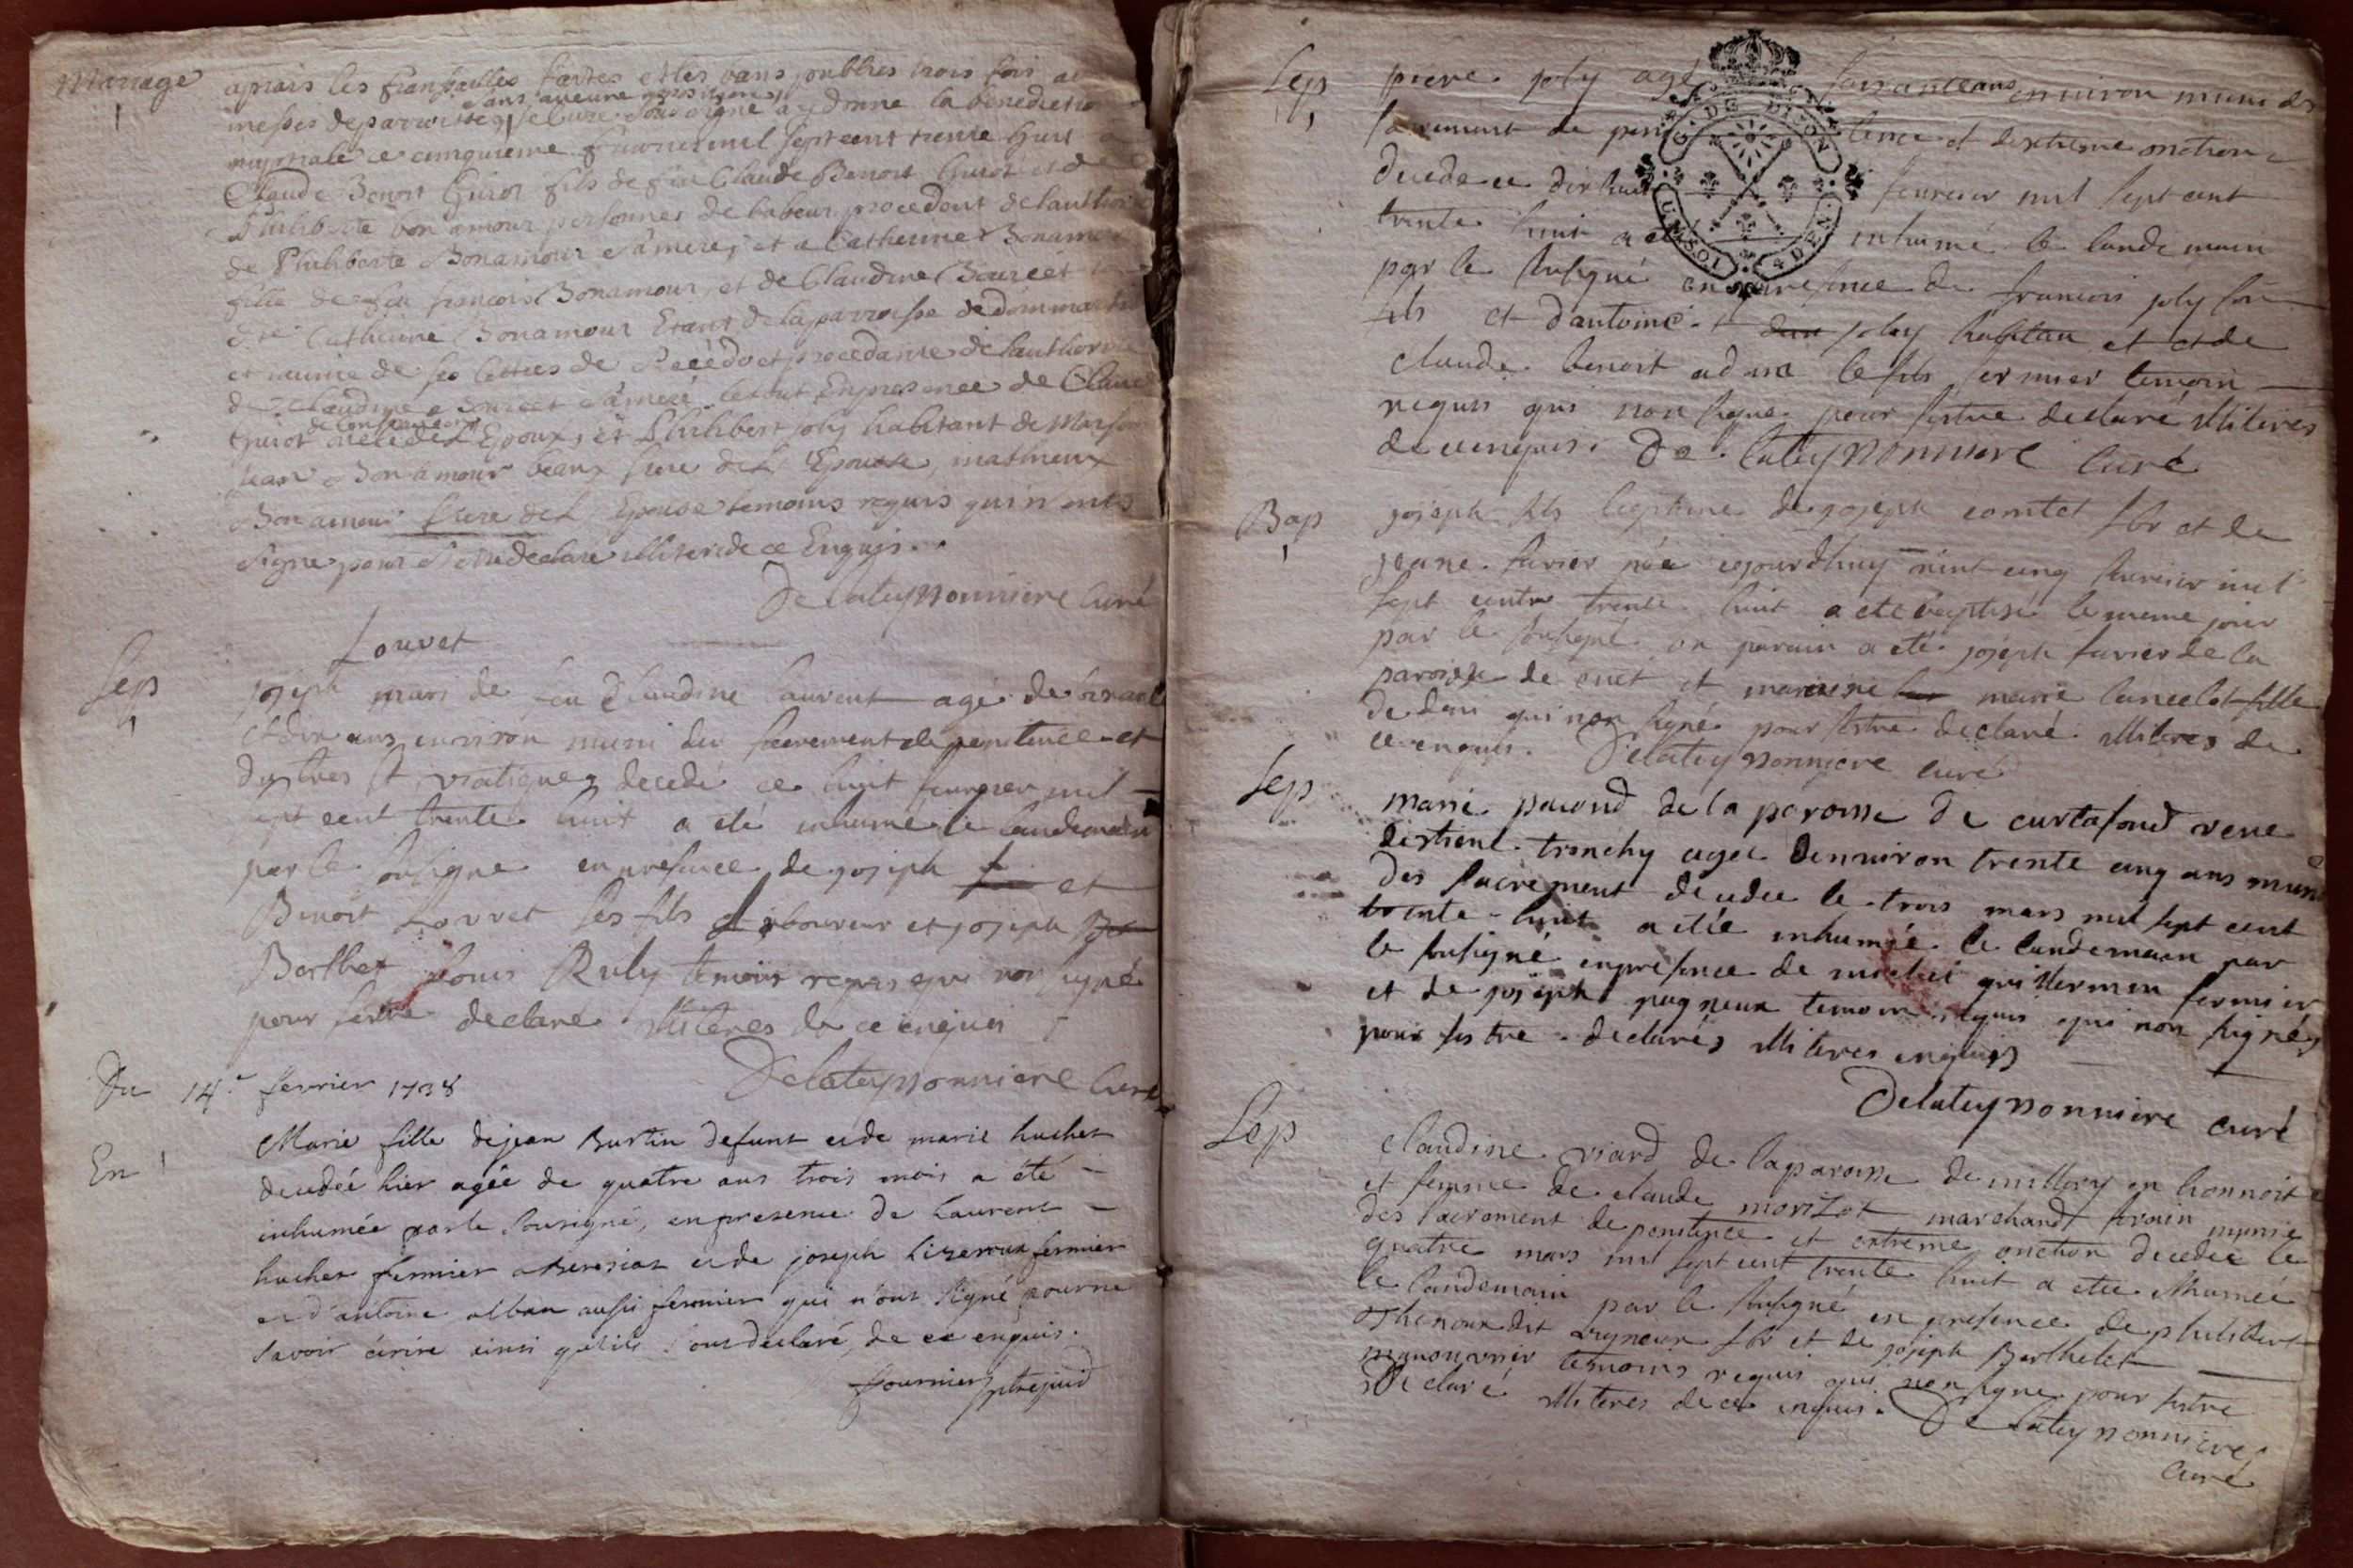 Mariage
apriais les fiansailles faittes et les bans publies trois fois au
sans aucune opposition
messes de parroisse je Curé sousigné ay donné la benediction
nuptiale ce cinquieme fevrier mil sept cent trente huit a
Claude Benoit Guiot fils de feu Claude Benoit Guiot et de
Philiberte bon amour personnes de labeur procedant de lauthorité
de Philiberte Bonamour sa mere, et a Catherine Bonamour
fille de feu francois Bonamour, et de Claudine Bourcet
Catherine Bonamour Etant de la parroisse de dommartin
et munie de ses lettres de Recedo et procedante de lauthorité
de Claudine Bourcet sa mere le tout En presence de Claude
Guiot Epoux, et Philibert joly habitant de
jean Bonamour beaux frere de L'Epouse, mathieux
Bonamour frere de L'Epouse temoins requis qui n'ont
signe pour s'etre declare illiteré de ce Enquis.
Delateyssonniere Curé
Louvet
Sep
1
joseph mari de feu Claudine laurent agé de soixante
et dix ans environ muni du sacrement de penitence et
du tres st viatique, decedé ce huit feuvrier mil
sept cent trente huit a eté inhumé le landemain
par le sousigne en presence de joseph et
Benoit Louvet ses fils laboureur et joseph
Berthet Louis Ruly temoins requis qui non signé
pour sestre declare illiteres de ce enquis
Delateyssonniere Curé
Du 14e fevrier 1738
En 1
Marie fille de jean Burtin defunt et de marie huchet
decedée hier agée de quatre ans trois mois a été
inhumée par le sousigné, en presence de Laurent
huchet fermier a et de joseph fermier
et d'antoine alban aussi fermier qui n'ont signé pour ne
savoir écrire ainsi qu'ils l'ont declaré, de ce enquis.
fournier
Sep
1
piere joly agé soixante ans environ muni des
sacrement de penitence et dextreme onction
decede ce dix huit feuvrier mil sept cent
G. DE DIJON
trente huit a eté inhumé le landemain
par le susigné en presence de francois joly son
fils et dantoine joly habitan et de
claude benoit le fils fermier temoin
requis qui non signe pour sestre declaré illiteres
de ce enquis. De lateyssonniere Curé
Bap
1
joseph fils legitime de joseph comtet lbr et de
jeane favier née cejourdhuy vint cinq feuvrier mil
sept cents trente huit a eté baptisé le meme jour
par le sousigné son parain a eté joseph favier de la
paroisse de cuet et maraine marie lancelot fille
de qui non signé pour sestre declaré illiteres de
ce enquis. Delateyssonniere curé
Sep
marie pacoud de la paroisse de curtafond veve
destiene tronchy agee denviron trente cinq ans munie
des sacrement decedee le trois mars mil sept cent
trente huit a etée inhumée le landemain par
le sousigné en presence de michel guillermin fermier
et de joseph pagneux temoin requis qui non signés
pour sestre declarés illiteres enquis
Delateyssonniere curé
Sep
Claudine viard de la paroisse de
et femme de claude morizot marchand forain munie
des sacrement de penitence et extreme onction decedée le
quatre mars mil sept cent trente huit a etee ihumée
le landemain par le susigné en presence de philibert
thenoux dit lbr et de joseph Berthelet
manouvrier temoins requis qui non signe pour sestre
declaré illiteres de ce enquis. De lateyssonniere
Curé